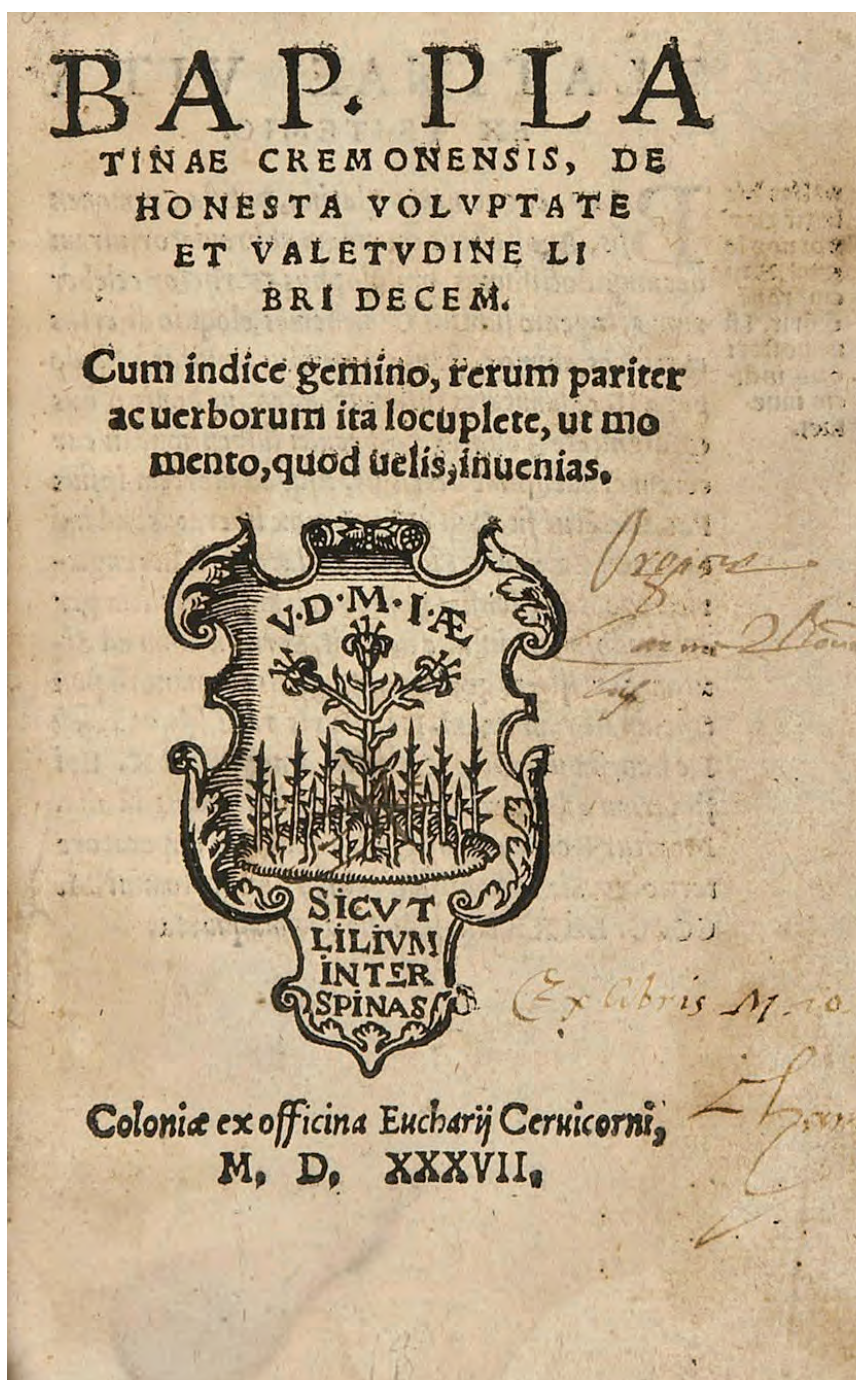 BAP. PLA
TINAE CREMONENSIS, DE
HONESTA VOLVPTATE
ET VALETVDINE LI
BRI DECEM.
Cum indice gemino, rerum pariter
ac uerborum ita locuplete, ut mo
mento, quod uelis, inuenias.
V·D·M·I·Æ
SICVT
LILIVM
INTER
SPINAS
Ex libris M.
Coloniæ ex officina Eucharij Ceruicorni,
M. D. XXXVII.